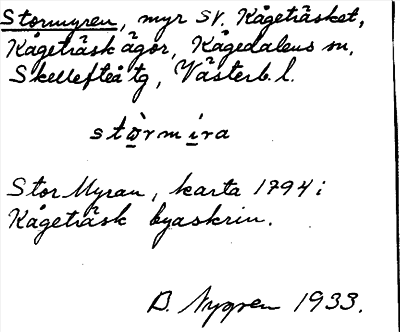 Stormyren, myr sv. Kågeträsket,
Kågeträsk ägor, Kågedalens sn,
Skellefteå tg, Västerb. l.
stòrmira
Stor Myran, karta 1794 i
Kågeträsk byaskrin.
B. Nygren 1933.